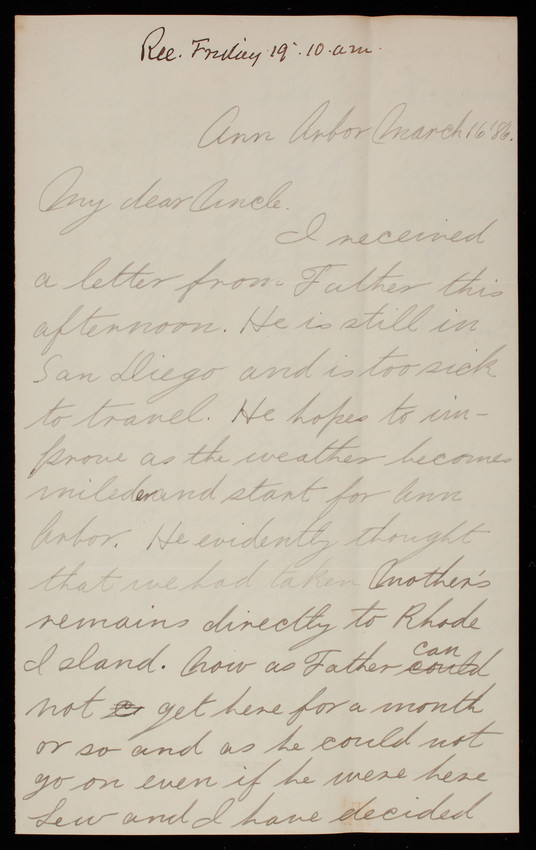 Rec. Friday 19. 10. a.m.
Ann Arbor March 16 '86.
My dear Uncle.
I received
a letter from Father this
afternoon. He is still in
San Diego and is too sick
to travel. He hopes to im-
prove as the weather becomes
milder and start for Ann
Arbor. He evidently thought
that we had taken Mother's
remains directly to Rhode
Island. Now as Father could can
not get here for a month
or so and as he could not
go on even if he were here
Lew and I have decided